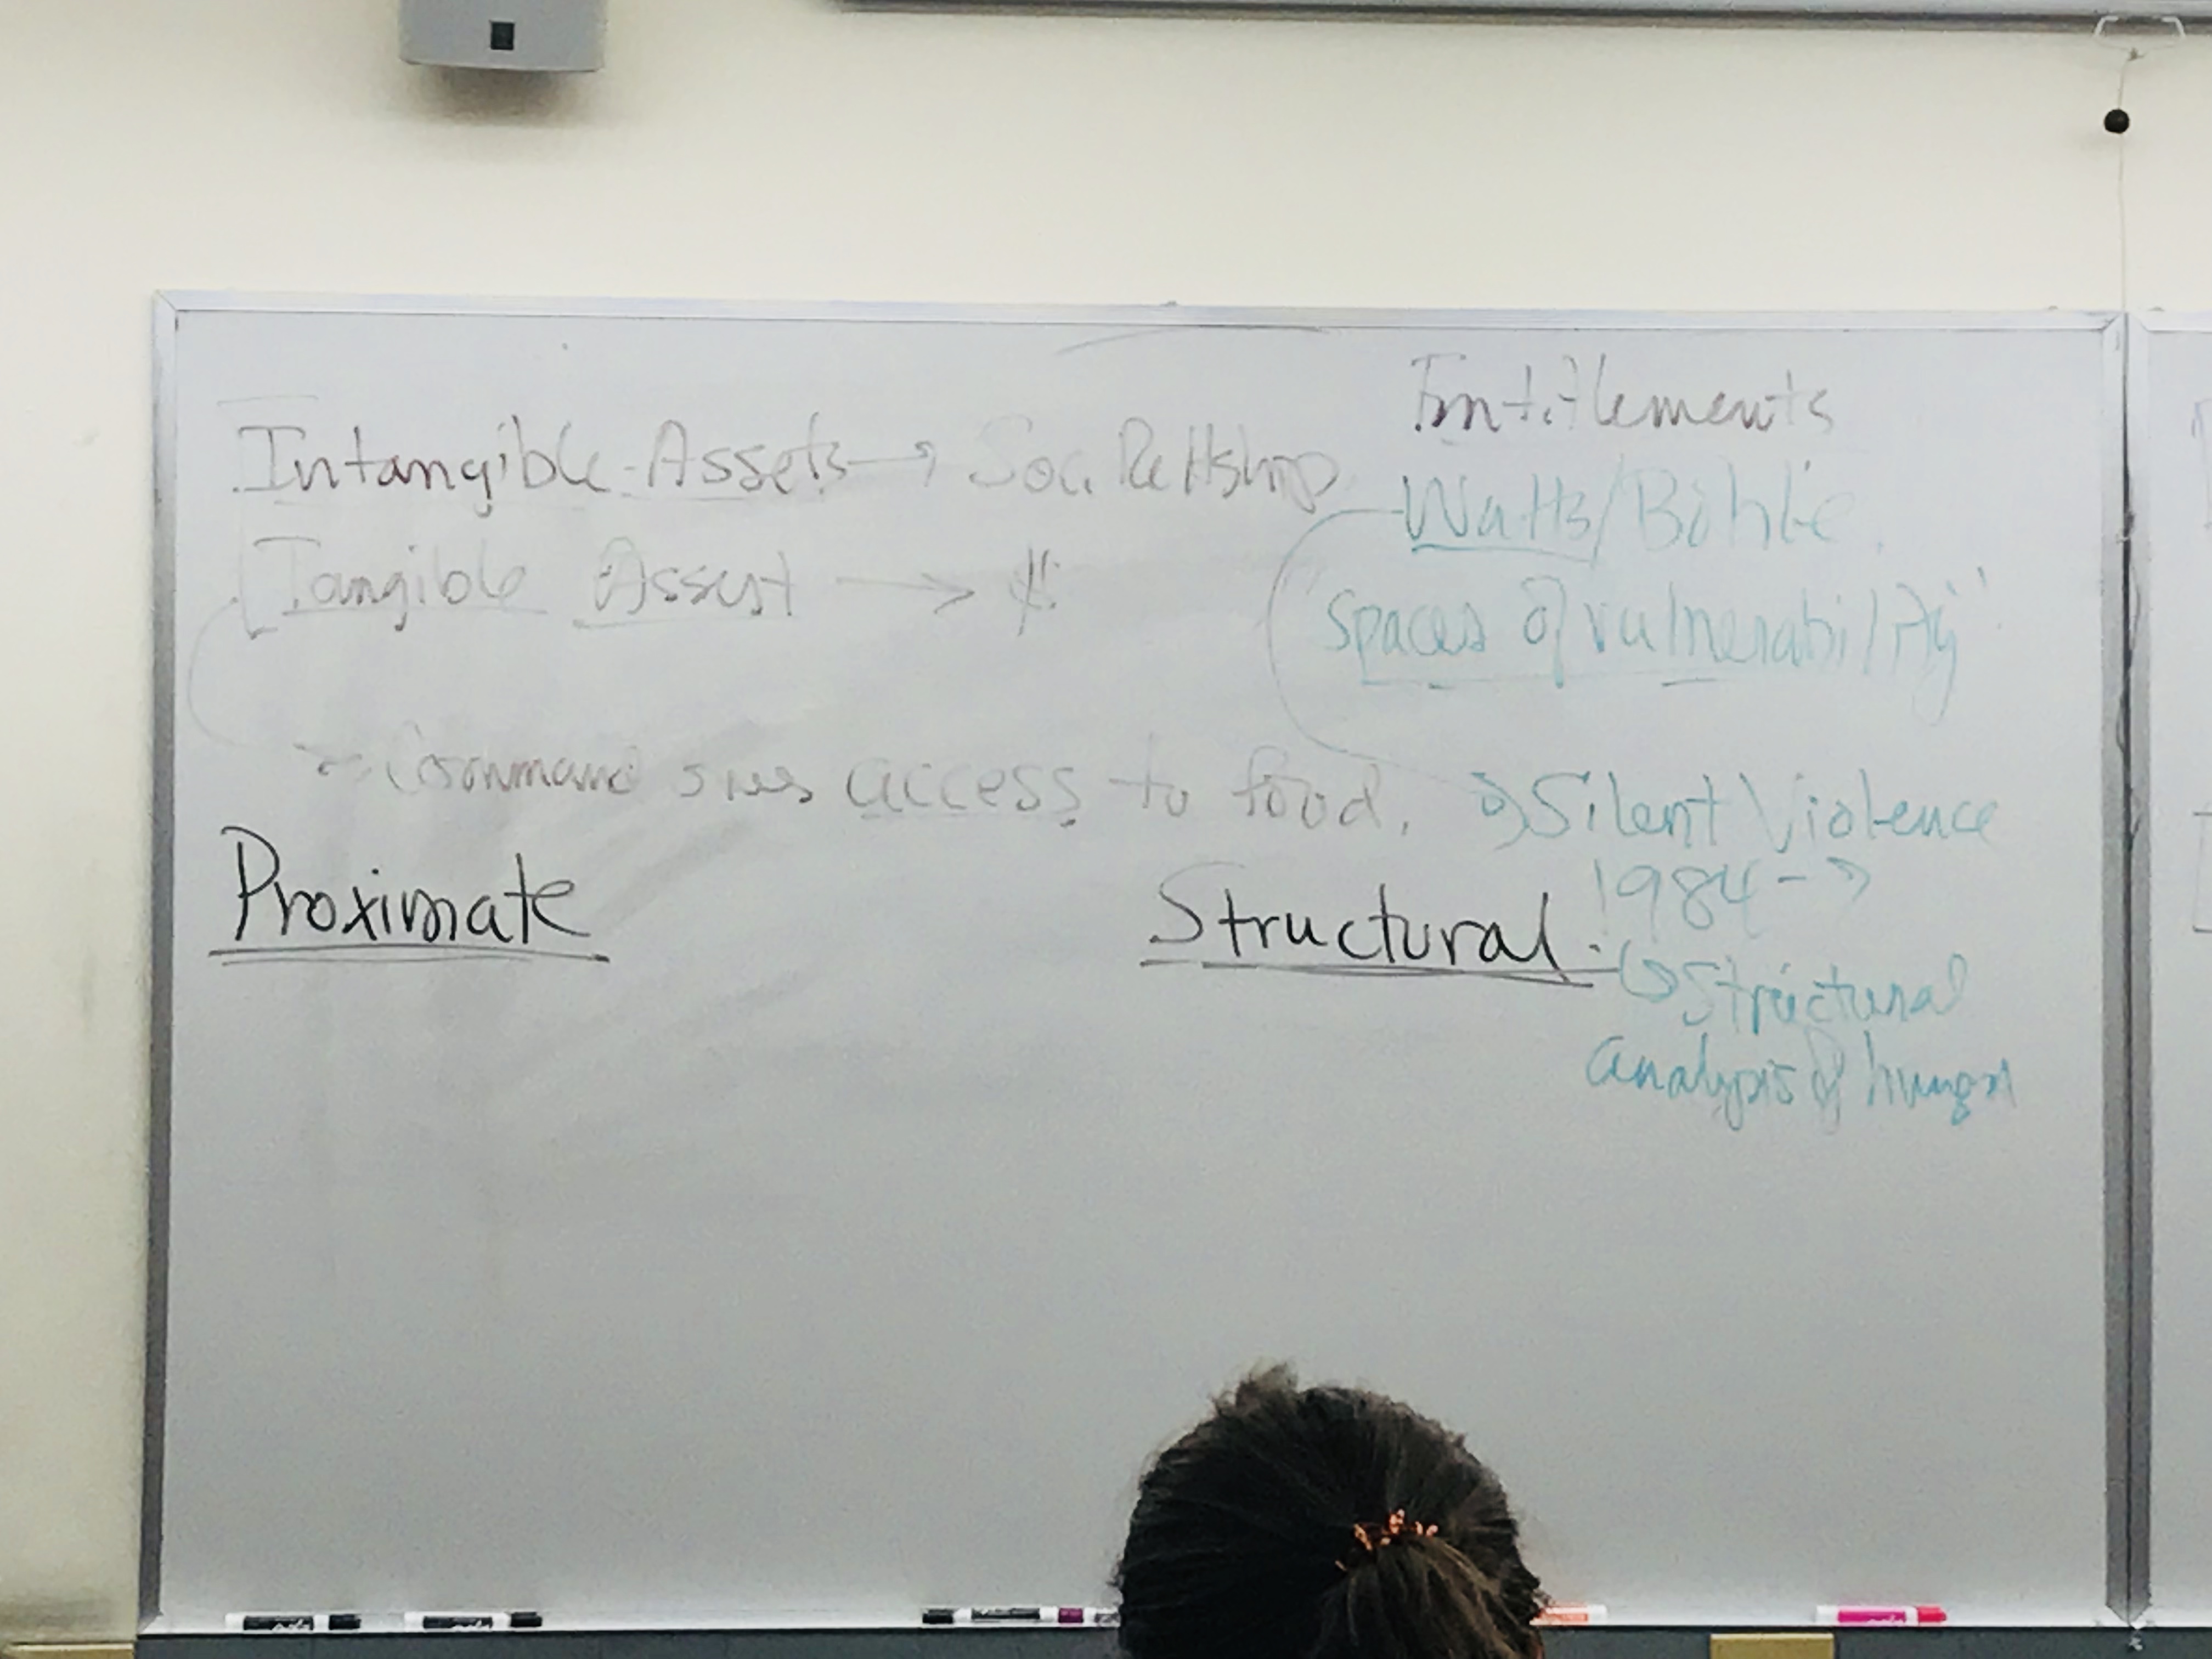 Entitlements
Intangible Assets → Soc. Reltship
Watts/Bohle
Tangible Assest → $
"Spaces of vulnerability"
Command over access to food.
Silent Violence
1984 →
Proximate
Structural
Structural
analysis of hunger